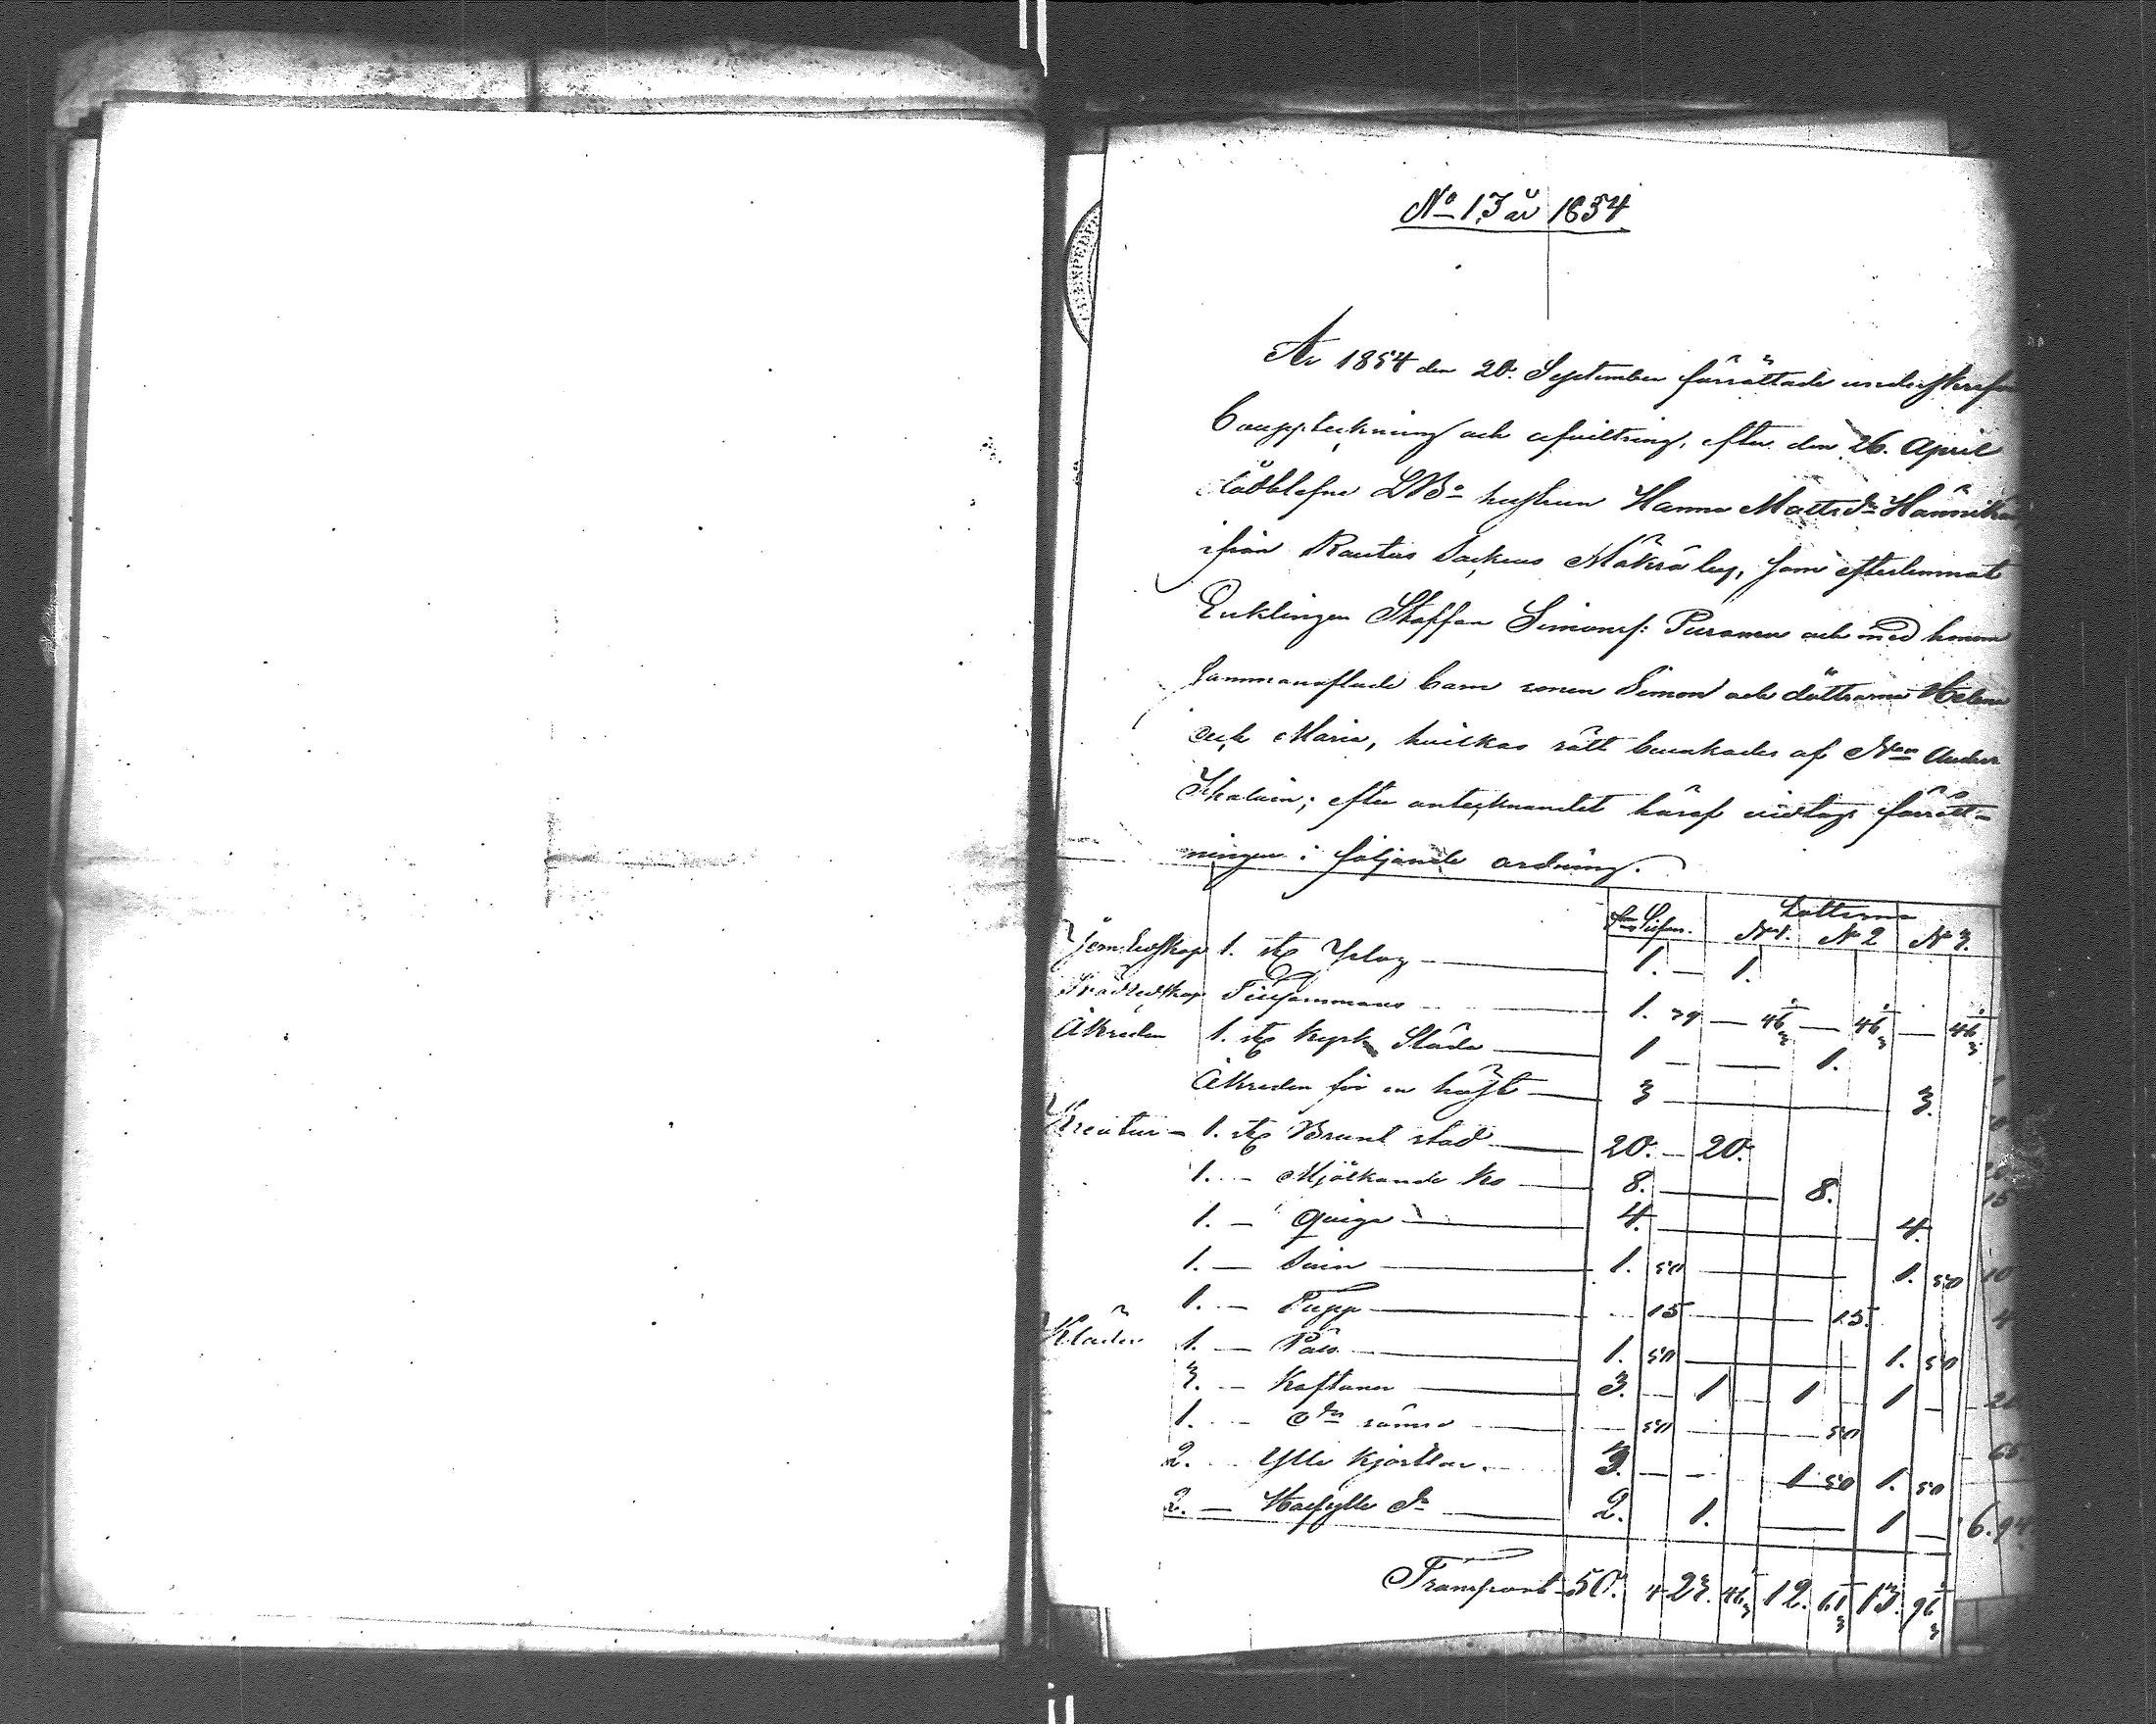 No 13 år 1854
År 1854 den 20. September förrättade underskrefne
bouppteckning och afvittring, efter den 26. April
dödblefne LBo hustrun Hanna Mattsdr Hännikäi
ifrån Rautus Sockens Mäkrä by, som efterlemnat
Enklingen Staffan Simonss: Pusanen och med honom
sammanaflade barn sonen Simon och döttrarna Helena
och Maria, hvilkas rätt bevakades af Nmn Anders
efter antecknandet häraf vidtogs förrätt-
ningen i följande ordning.
Lotterne
No 1. No 2 No 3.
Jernredskap 1. st Yxlag 1. 1.
Trädredskap Tillsammans 1. 39 46 1/3 46 1/3 46 1/3
Åkreden 1. st kyrk Släda 1 1.
Åkreden för en häst 3 3.
Kreatur 1. st Brunt stod 20. 20.
1. Mjölkande Ko 8. 8.
1. Qviga 4. 4.
1. Svin 1. 50 1. 50
1. Tupp 15 15.
Kläder 1. Päls 1. 50 1. 50
3. Kaftaner 3. 1 1 1
1. do sämre 50 50
2. Ylle Kjortlar. 3. 1 50 1. 50
2. Halfylle do 2. 1. 1
Transport 50. 4 23. 46 1/3 12. 61 1/3 13. 96 1/3